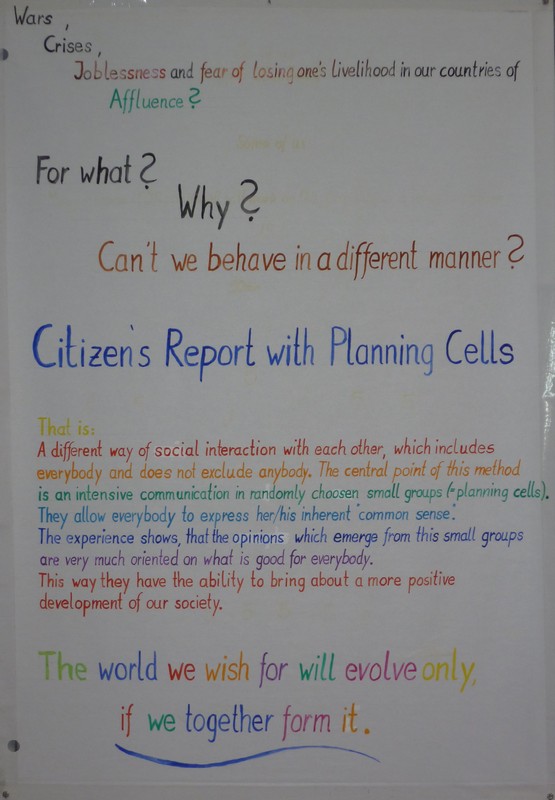 Wars ,
Crises ,
Joblessness and fear of losing one's livelihood in our countries of
Affluence ?
For what ?
Why ?
Can't we behave in a different manner ?
Citizen's Report with Planning Cells
That is:
A different way of social interaction with each other, which includes
everybody and does not exclude anybody. The central point of this method
is an intensive communication in randomly choosen small groups (=planning cells).
They allow everybody to express her/his inherent "common sense".
The experience shows, that the opinions which emerge from this small groups
are very much oriented on what is good for everybody.
This way they have the ability to bring about a more positive
development of our society.
The world we wish for will evolve only,
if we together form it.